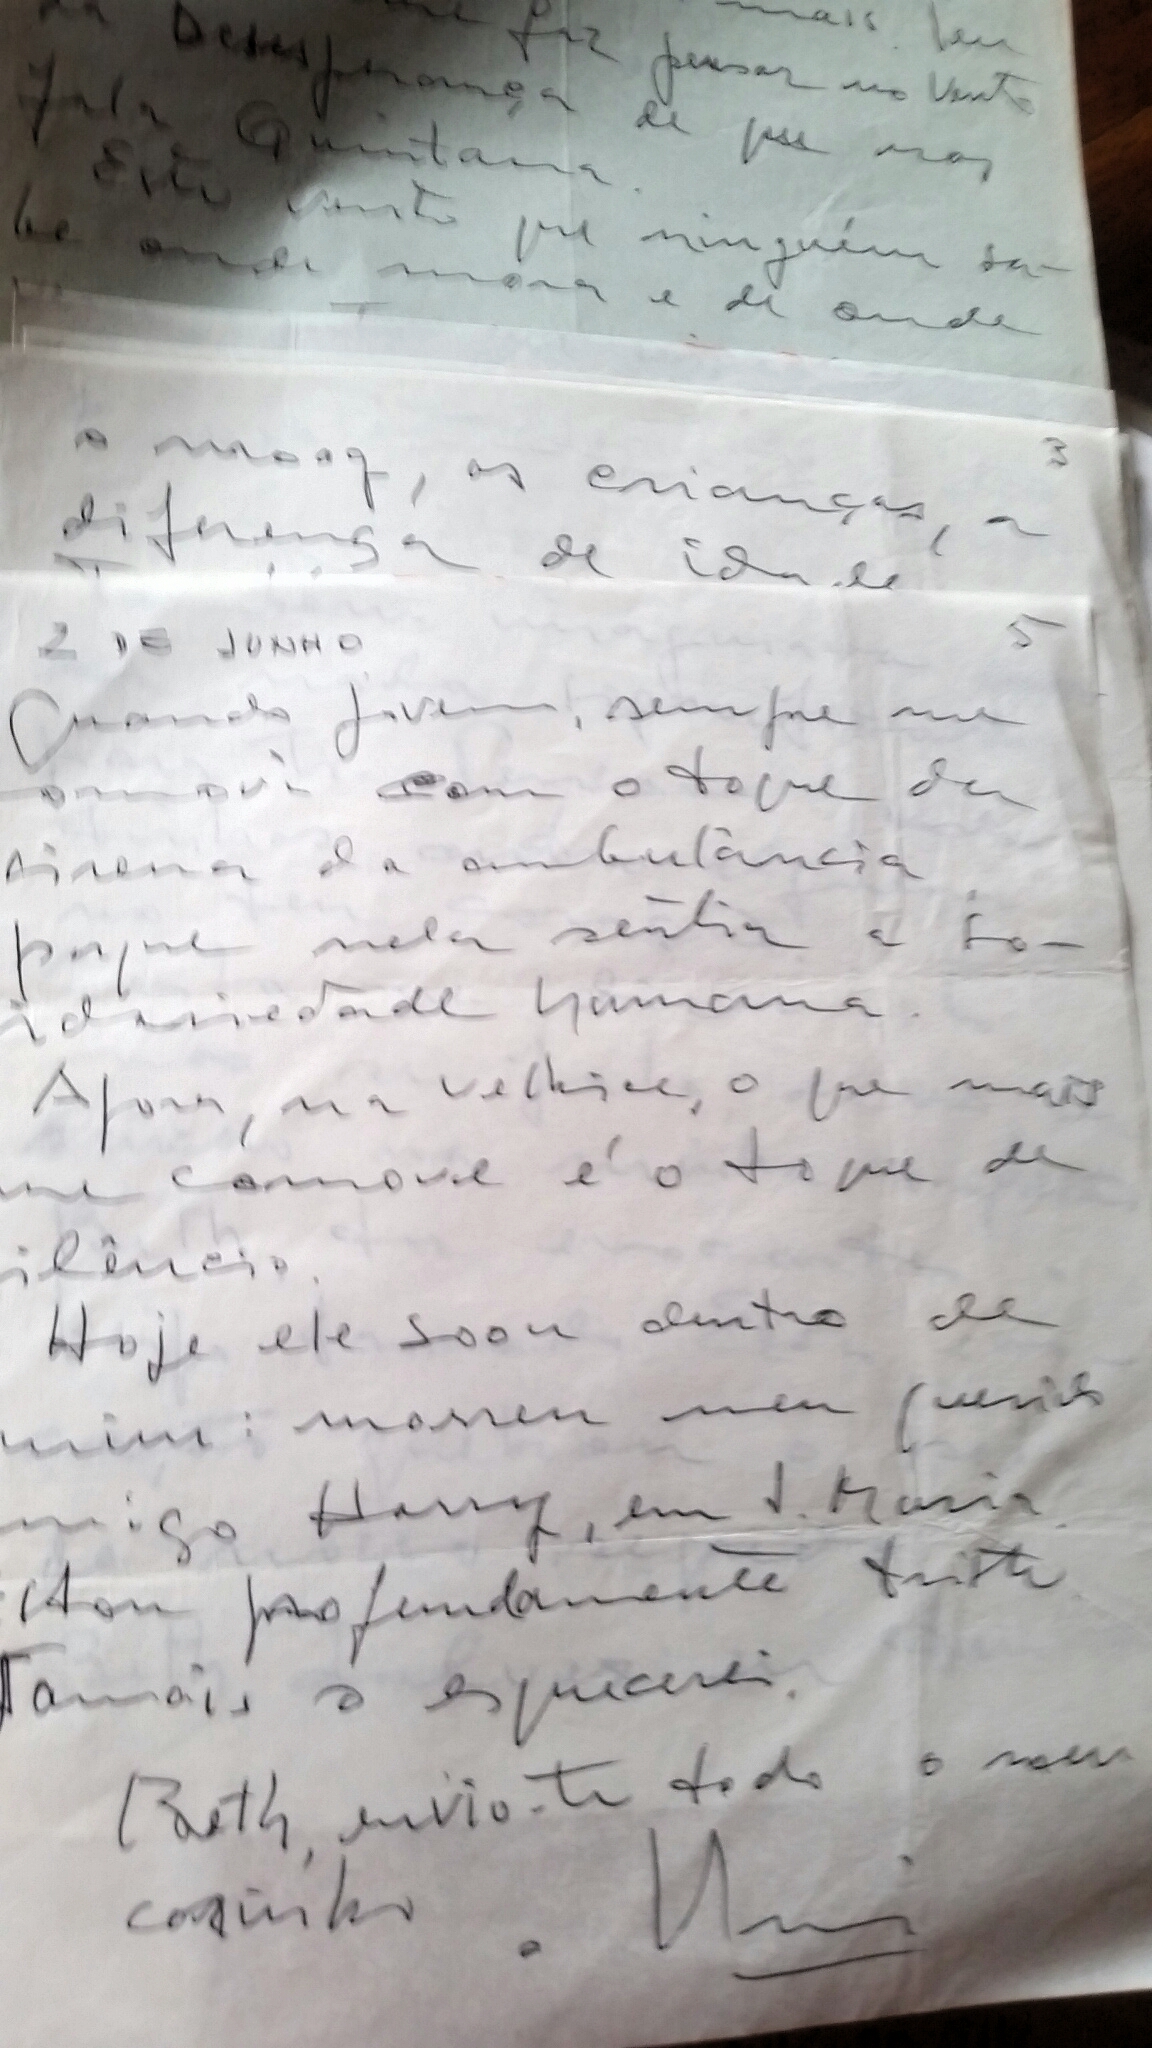 da Desesperança faz pensar no vento
de que nos
fala Quintana.
Este vento que ninguém sa-
be onde mora e de onde
3
o moog, as crianças, a
diferença de idade
2 DE JUNHO 5
Quando jovem, sempre me
comovi com o toque da
sirena da ambulância
porque nela sentia a so-
idariedade humana.
Agora, na velhice, o que mais
me comove é o toque de
silêncio.
Hoje ele soou dentro de
mim: morreu meu querido
amigo Harry, em S. Maria.
Estou profundamente triste.
Jamais o esquecerei.
Beth, envio-te todo o meu
carinho.